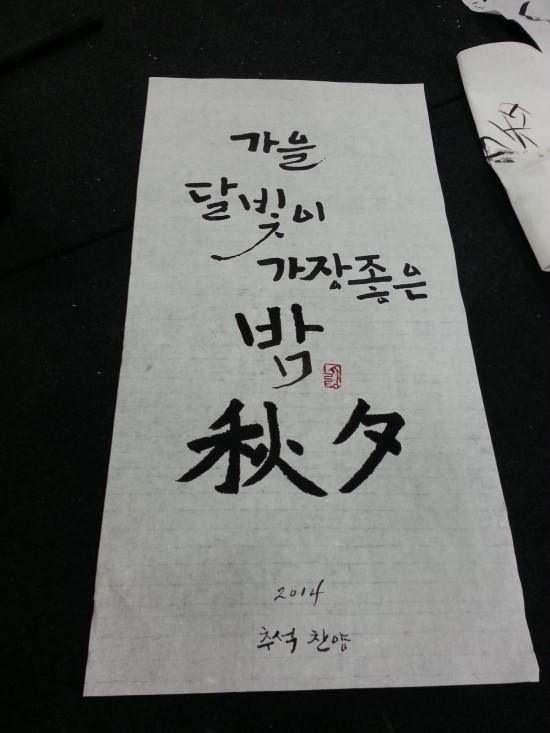 가을
달빛이
가장좋은
밤
秋夕
2014
추석 찬양